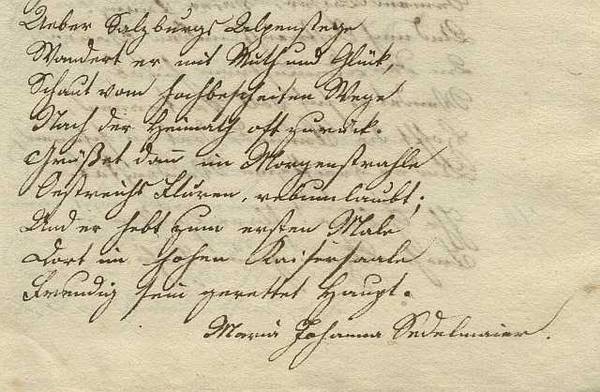 Ueber Salzburgs Alpenstege
Wandert er mit Muth und Glück,
Schaut vom hochbeschneiten Wege
Nach der Heimath oft zurück.
Grüßet dann im Morgenstrahle
Oestreichs Fluren, rebumlaubt;
Und er hebt zum ersten Male
Dort im hohen Kaisersaale
Freudig sein gerettet Haupt.
Maria Johanna Sedelmaier.